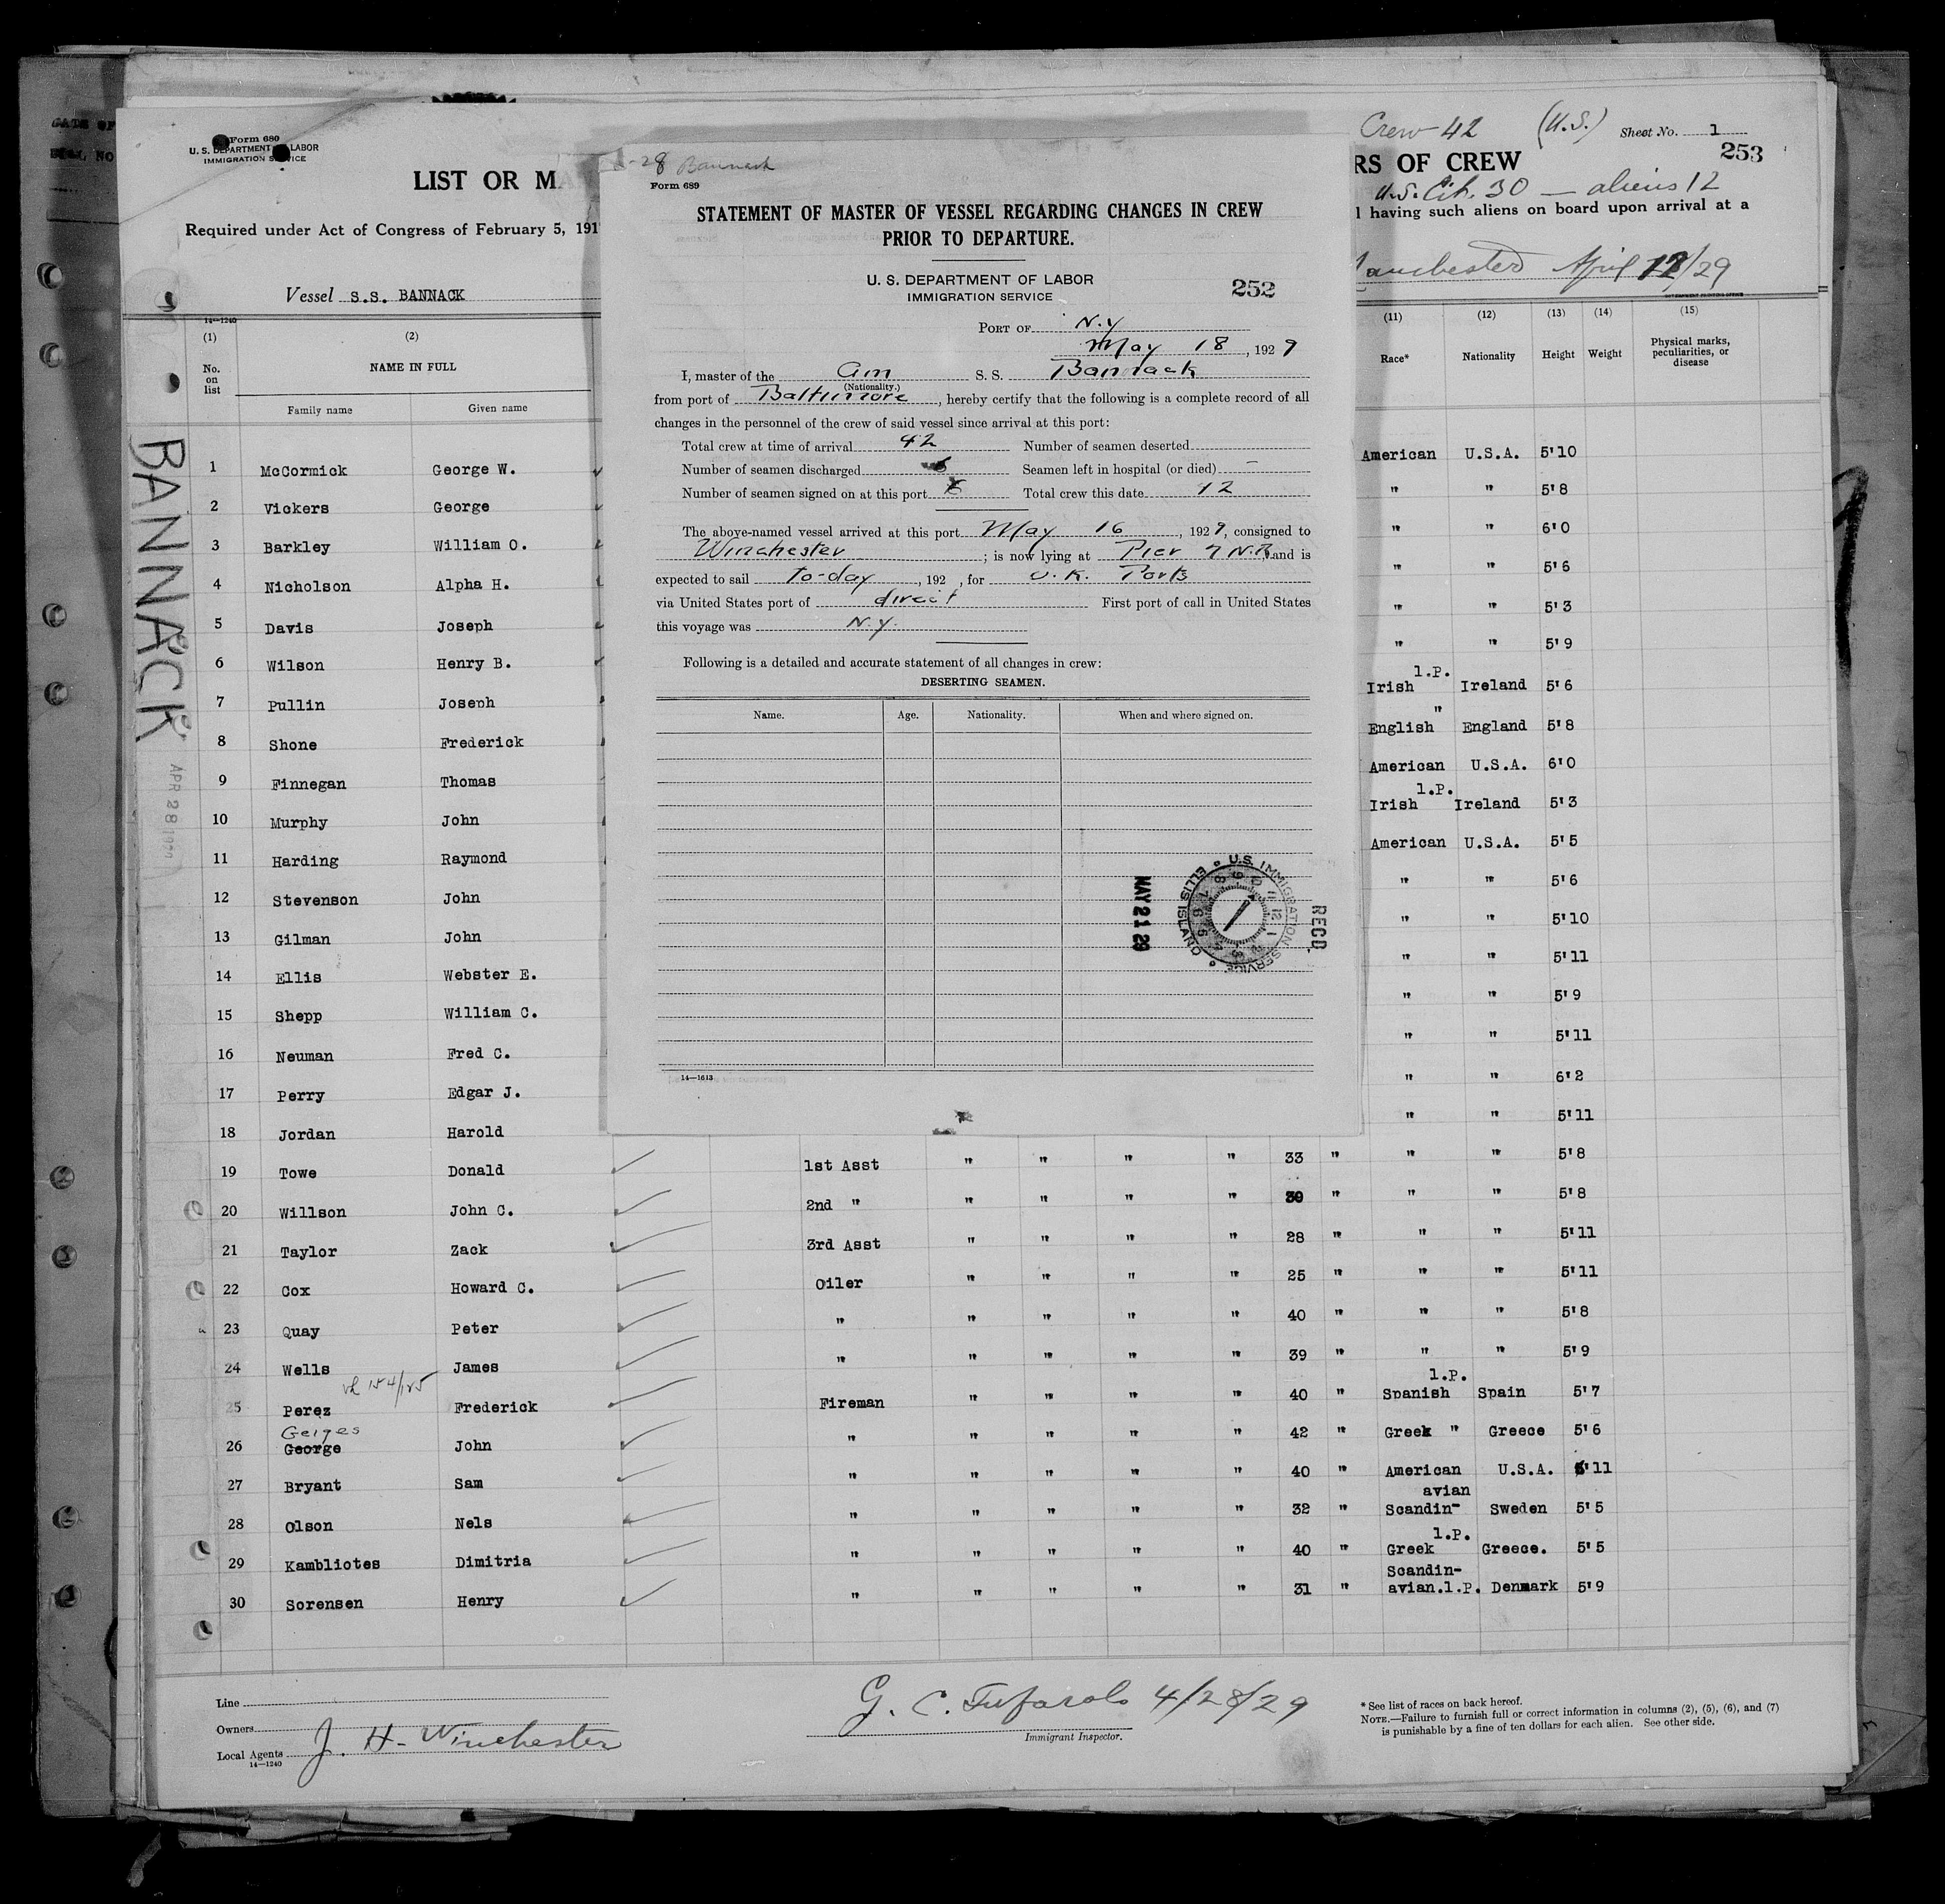 Form 680
U. S. DEPARTMENT OF LABOR
IMMIGRATION SERVICE
LIST OR MA
Required under Act of Congress of February 5, 191
Vessel S.S. BANNACK
14—1240
(1) (2)
No. on list
NAME IN FULL
Family name Given name
BANNACK
APR 28 1929
1 McCormick George W.
2 Vickers George
3 Barkley William O.
4 Nicholson Alpha H.
5 Davis Joseph
6 Wilson Henry B.
7 Pullin Joseph
8 Shone Frederick
9 Finnegan Thomas
10 Murphy John
11 Harding Raymond
12 Stevenson John
13 Gilman John
14 Ellis Webster E.
15 Shepp William C.
16 Neuman Fred C.
17 Perry Edgar J.
18 Jordan Harold
-28 Bannack
Form 689
STATEMENT OF MASTER OF VESSEL REGARDING CHANGES IN CREW
PRIOR TO DEPARTURE.
U. S. DEPARTMENT OF LABOR
IMMIGRATION SERVICE
252
PORT OF N.Y
May 18, 1929
I, master of the Am S. S. Bannack
(Nationality.)
from port of Baltimore, hereby certify that the following is a complete record of all
changes in the personnel of the crew of said vessel since arrival at this port:
Total crew at time of arrival 42 Number of seamen deserted
Number of seamen discharged Seamen left in hospital (or died) —
Number of seamen signed on at this port Total crew this date 42
The above-named vessel arrived at this port May 16, 1929, consigned to
Winchester; is now lying at Pier 7 N.R. and is
expected to sail to-day, 192 , for U.K. Ports
via United States port of direct First port of call in United States
this voyage was N.Y.
Following is a detailed and accurate statement of all changes in crew:
DESERTING SEAMEN.
Name. Age. Nationality. When and where signed on.
MAY 21 29
U.S. IMMIGRATION SERVICE ELLIS ISLAND
RECD.
14—1613
Crew 42 (U.S.) Sheet No. 1
253
RS OF CREW
U.S. Cit. 30 — aliens 12
l having such aliens on board upon arrival at a
anchester April 12/29
(11) (12) (13) (14) (15)
Race* Nationality Height Weight Physical marks, peculiarities, or disease
American U.S.A. 5'10
" " 5'8
" " 6'0
" " 5'6
" " 5'3
" " 5'9
1.P.
Irish Ireland 5'6
"
English England 5'8
American U.S.A. 6'0
1.P.
Irish Ireland 5'3
American U.S.A. 5'5
" " 5'6
" " 5'10
" " 5'11
" " 5'9
" " 5'11
" " 6'2
" " 5'11
19 Towe Donald 1st Asst " " " " 33 " " " 5'8
20 Willson John C. 2nd " " " " " 30 " " " 5'8
21 Taylor Zack 3rd Asst " " " " 28 " " " 5'11
22 Cox Howard C. Oiler " " " " 25 " " " 5'11
23 Quay Peter " " " " " 40 " " " 5'8
24 Wells James " " " " " 39 " " " 5'9
1.P.
25 Perez Frederick Fireman " " " " 40 " Spanish Spain 5'7
Geiges
26 George John " " " " " 42 " Greek " Greece 5'6
27 Bryant Sam " " " " " 40 " American U.S.A. 5'11
avian
28 Olson Nels " " " " " 32 " Scandin- Sweden 5'5
1.P.
29 Kambliotes Dimitria " " " " " 40 " Greek Greece. 5'5
Scandin-
30 Sorensen Henry " " " " " 31 " avian.1.P. Denmark 5'9
Line
Owners
Local Agents J. H. Winchester
14—1240
4/28/29
Immigrant Inspector.
* See list of races on back hereof.
NOTE.—Failure to furnish full or correct information in columns (2), (5), (6), and (7)
is punishable by a fine of ten dollars for each alien. See other side.